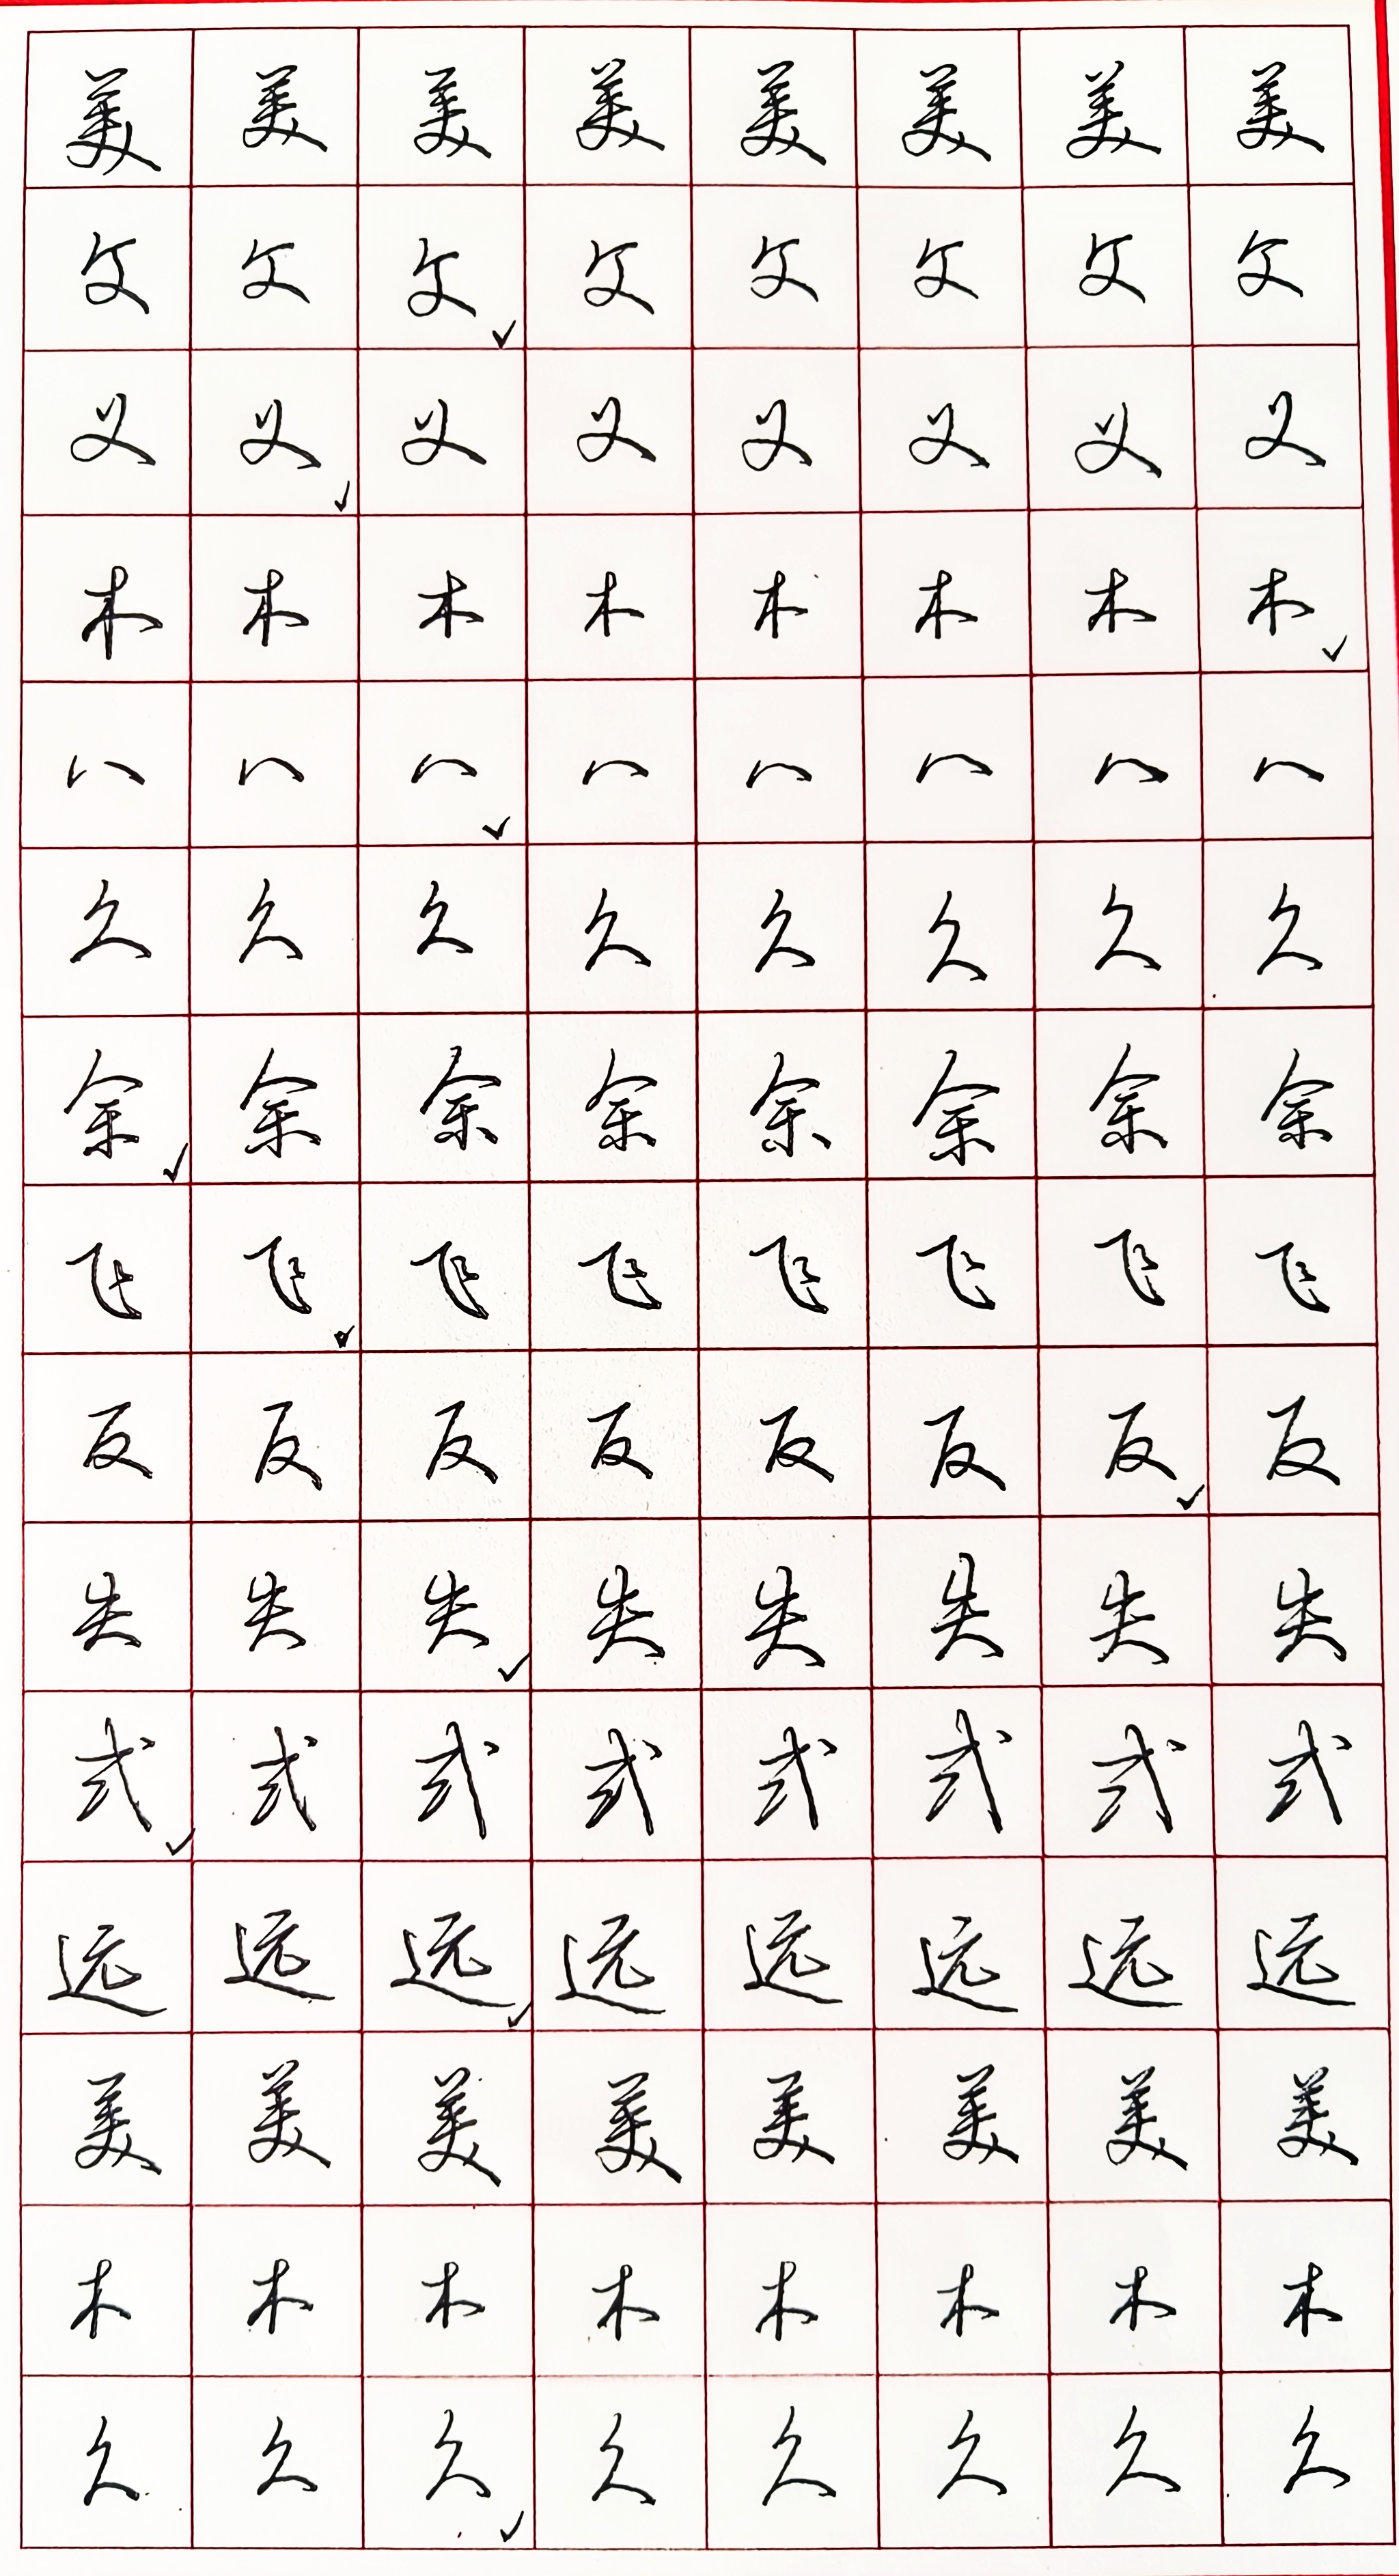 美美美美美美美美
文文文文文文文文
义义义义义义义义
木木木木木木木木
八八八八八八八八
久久久久久久久久
余余余余余余余余
飞飞飞飞飞飞飞飞
反反反反反反反反
失失失失失失失失
式式式式式式式式
远远远远远远远远
美美美美美美美美
木木木木木木木木
久久久久久久久久